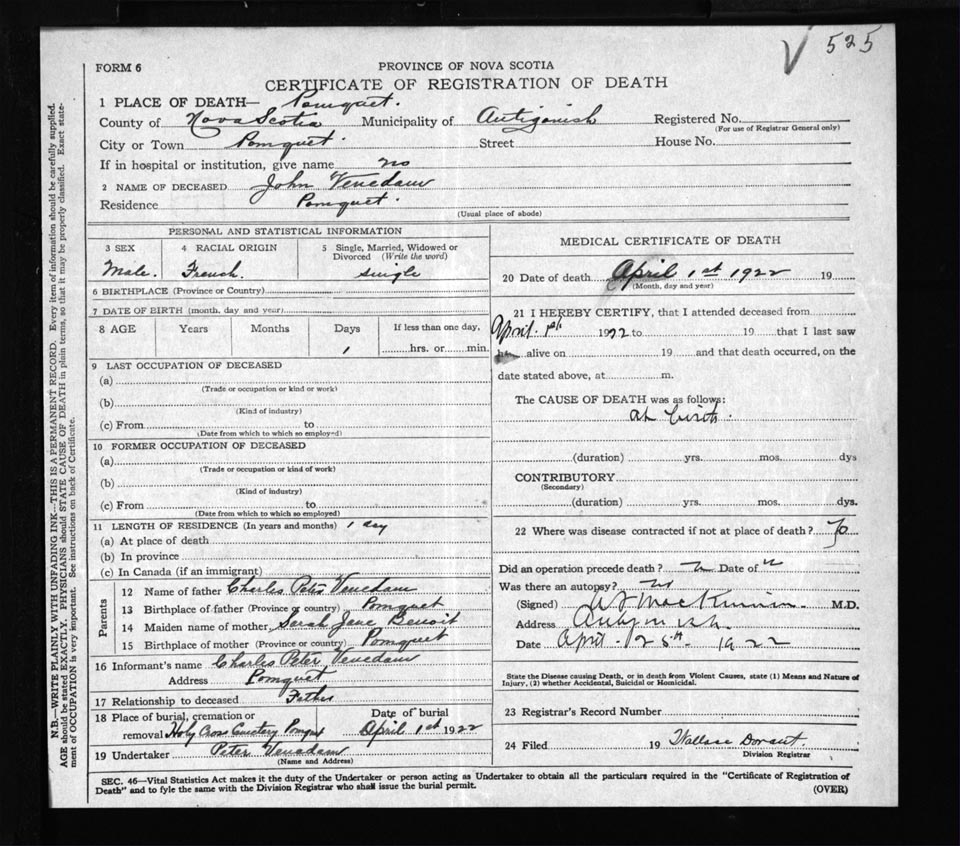 525
FORM 6
PROVINCE OF NOVA SCOTIA
CERTIFICATE OF REGISTRATION OF DEATH
1 PLACE OF DEATH— Pomquet.
County of Nova Scotia Municipality of Antigonish Registered No.
(For use of Registrar General only)
City or Town Pomquet. Street House No.
If in hospital or institution, give name no
2 NAME OF DECEASED John Venedam
Residence Pomquet.
(Usual place of abode)
PERSONAL AND STATISTICAL INFORMATION
3 SEX 4 RACIAL ORIGIN 5 Single, Married, Widowed or
Divorced (Write the word)
Male. French. single
6 BIRTHPLACE (Province or Country)
7 DATE OF BIRTH (month, day and year)
8 AGE Years Months Days If less than one day,
1 hrs. or min.
9 LAST OCCUPATION OF DECEASED
(a)
(Trade or occupation or kind or work)
(b)
(Kind of industry)
(c) From to
(Date from which to which so employed)
10 FORMER OCCUPATION OF DECEASED
(a)
(Trade or occupation or kind of work)
(b)
(Kind of industry)
(c) From to
(Date from which to which so employed)
11 LENGTH OF RESIDENCE (In years and months) 1 day
(a) At place of death
(b) In province
(c) In Canada (if an immigrant)
Parents
12 Name of father Charles Peter Venedam
13 Birthplace of father (Province or country) Pomquet
14 Maiden name of mother Sarah Jane Benoit
15 Birthplace of mother (Province or country) Pomquet
16 Informant's name Charles Peter Venedam
Address Pomquet
17 Relationship to deceased Father
18 Place of burial, cremation or Date of burial
removal Holy Cross Cemetery Pomquet April 1st 1922
19 Undertaker Peter Venedam
(Name and Address)
MEDICAL CERTIFICATE OF DEATH
20 Date of death April 1st 1922 19
(Month, day and year)
21 I HEREBY CERTIFY, that I attended deceased from
April 1st 1922 to 19 that I last saw
h alive on 19 and that death occurred, on the
date stated above, at m.
The CAUSE OF DEATH was as follows:
at birth.
(duration) yrs. mos. dys
CONTRIBUTORY
(Secondary)
(duration) yrs. mos. dys.
22 Where was disease contracted if not at place of death?
Did an operation precede death? Date of
Was there an autopsy?
(Signed) MacKinnon M.D.
Address Antigonish
Date April 28th 1922
State the Disease causing Death, or in death from Violent Causes, state (1) Means and Nature of
Injury, (2) whether Accidental, Suicidal or Homicidal.
23 Registrar's Record Number
24 Filed 19 Wallace Dorant.
Division Registrar
SEC. 46—Vital Statistics Act makes it the duty of the Undertaker or person acting as Undertaker to obtain all the particulars required in the "Certificate of Registration of
Death" and to fyle the same with the Division Registrar who shall issue the burial permit.
(OVER)
N.B.—WRITE PLAINLY WITH UNFADING INK—THIS IS A PERMANENT RECORD. Every item of information should be carefully supplied.
AGE should be stated EXACTLY. PHYSICIANS should STATE CAUSE OF DEATH in plain terms, so that it may be properly classified. Exact state-
ment of OCCUPATION is very important. See instructions on back of Certificate.